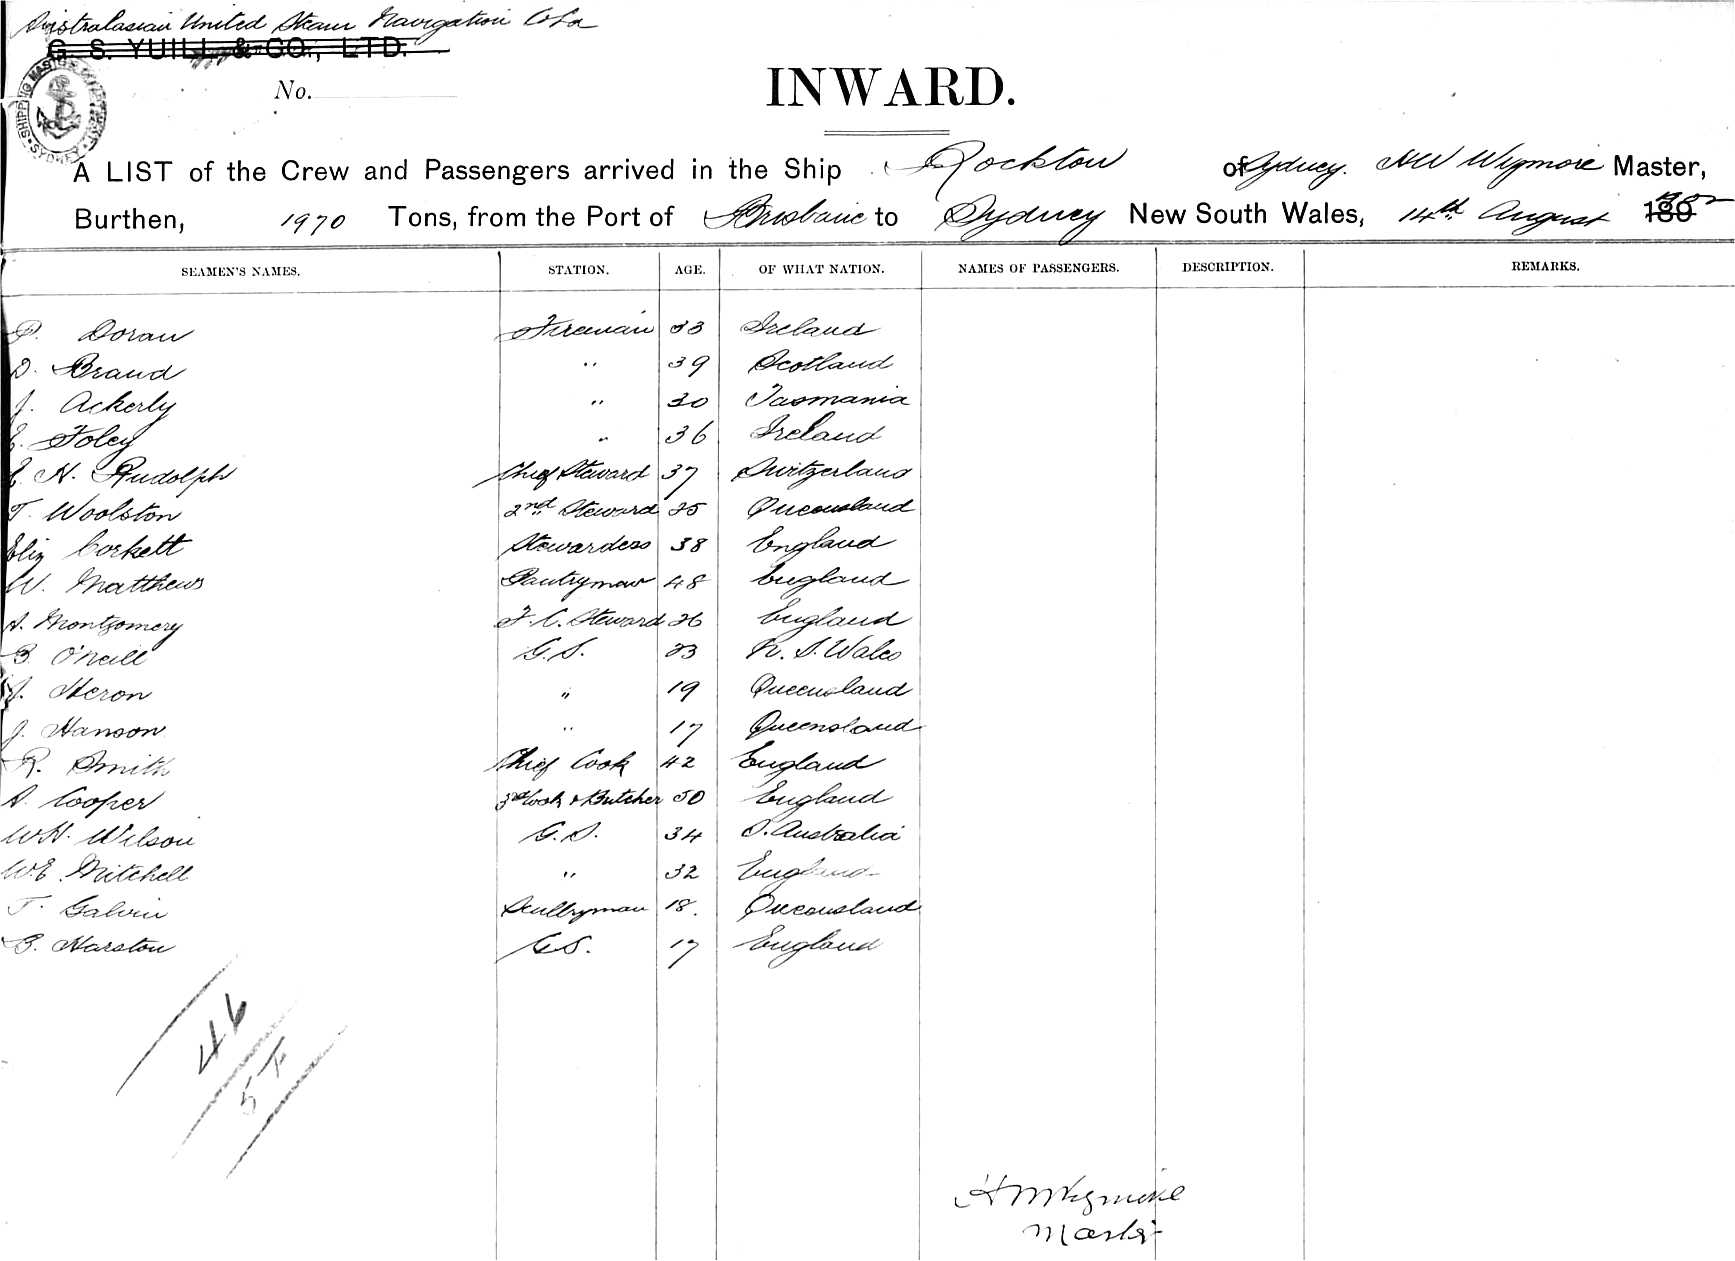 Australasian United Steam Navigation Co Ld
G. S. YUILL & CO., LTD.
No.
SHIPPING MASTER'S SYDNEY
INWARD.
A LIST of the Crew and Passengers arrived in the Ship Rockton of Sydney. HW Wigmore Master,
Burthen, 1970 Tons, from the Port of Brisbane to Sydney New South Wales, 14th August 189
SEAMEN'S NAMES. STATION. AGE. OF WHAT NATION. NAMES OF PASSENGERS. DESCRIPTION. REMARKS.
P. Doran Fireman 33 Ireland
D. Brand " 39 Scotland
J. Ackerly " 30 Tasmania
E. Foley " 36 Ireland
E H. Rudolph Chief Steward 37 Switzerland
T. Woolston 2nd Steward 25 Queensland
Eliz Corkett Stewardess 38 England
W. Matthews Pantryman 48 England
A. Montgomery F. C. Steward 26 England
B. O'Neill G.S. 23 N. S. Wales
J. Heron " 19 Queensland
J. Hanson " 17 Queensland
R. Smith Chief Cook 42 England
A. Cooper 3rd Cook & Butcher 50 England
W H. Wilson G.S. 34 S. Australia
W.E. Mitchell " 32 England
T. Galvin Scullryman 18. Queensland
B. Harston G.S. 17 England
46
5
HWWigmore
Master